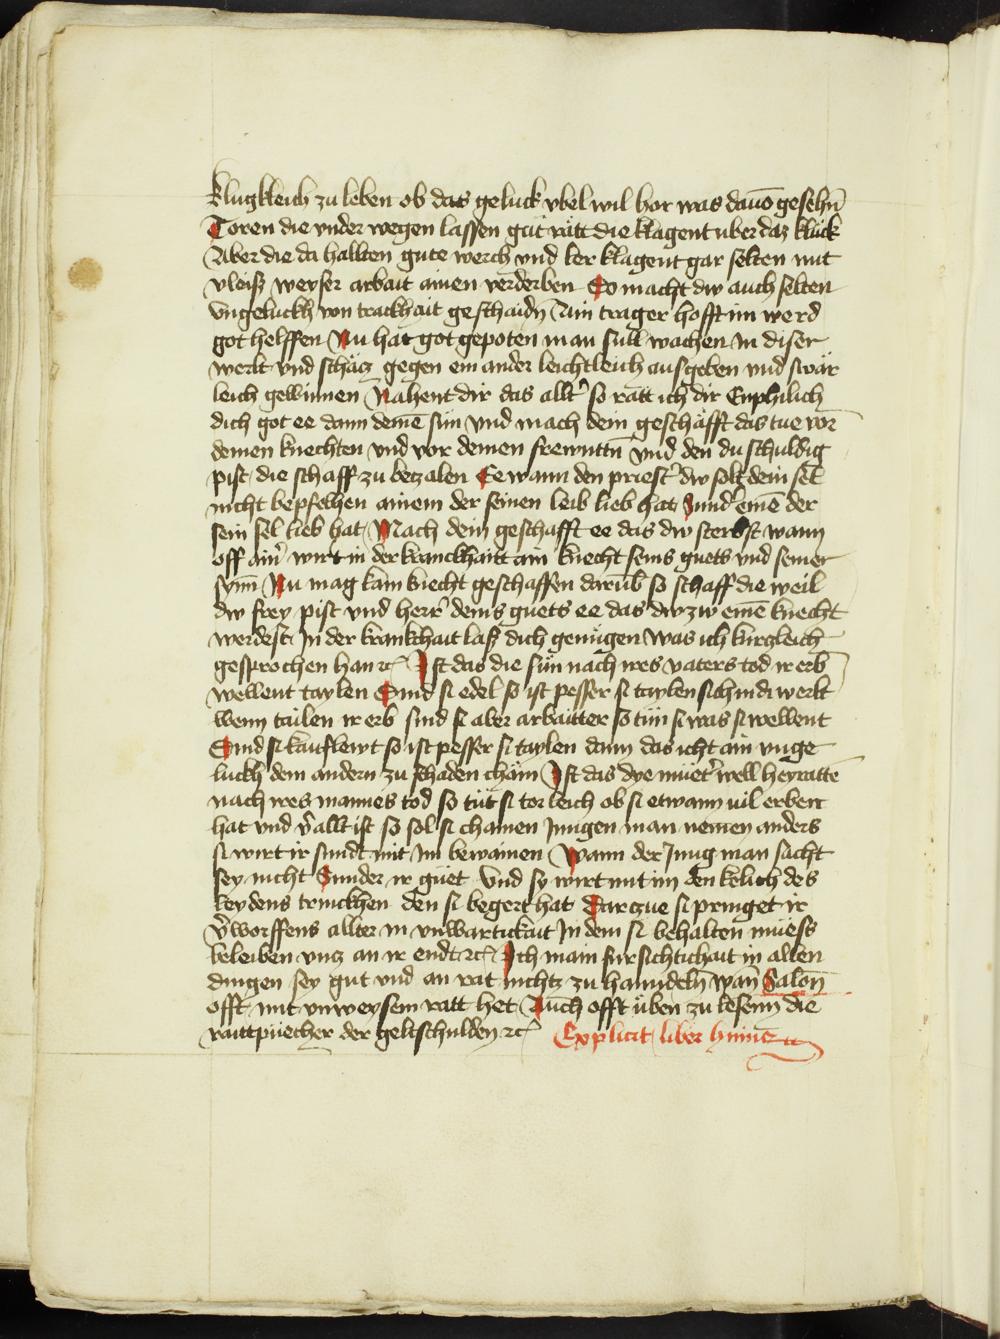 klugkleich zu leben ob das geluck vbel wil hor was dauō gesehn̄
Toren die vnder wegen lassen gůt ratt die klagent uber daz klück
Aber die da hallten gute werch vnd ler klagent gar selten mit
vleisz weyser arbait ainen verderben So macht dw auch selten
vngeluckh von trackhait geschaidn̄ Ain trager hofft im werd
got helffen Nu hat got gepoten man sull wachen In diser
werlt vnd schäcz gegen ein ander leichtleich ausgeben vnd swär
leich gewinnen Nahent dir das allt' so rätt ich dir Enphilich
dich got ee dann deinē sün vnd mach dein geschäfft das tue vor
deinen knechten vnd vor deinen frewnttn̄ vnd den du schuldig
pist die schaff zu betzalen Ee wann den priest' dw solt dein sel
nicht bepfelhen ainem der seinen leib lieb hat Sund' einē der
sein sel lieb hat Mach dein geschafft ee das dw sterbst wann
offt ain' wirt in der kranckhait ain knecht seins guets vnd seiner
synn̄ Nu mag kain knecht geschaffen darūb so schaff die weil
dw frey pist vnd herr' deins guets ee das dw zw einē knecht
werdest In der krankhait lasz dich genügen was ich kurczleich
gesprochen han ꝛc̄ Ist das die sün nach ires vaters tod ir erb
wellent taylen Sind si edel so ist pesser si taylen sich in di werlt
wenn tailen ir erb sind si aber arbaitter so tün si was si wellent
Sind si kauflewt so ist pesser si taylen dann das icht ain vnge
luckh dem andern zu schaden chäm Ist das dye müet' well heyratte
nach ires mannes tod so tüt si torleich ob si etwann vil erbert
hat vnd v̄allt ist so sol si chainen Jungen man nemen anders
si wirt ir sundt mit Im bewainen Wann der Jung man sucht
sey nicht Sunder ir güet vnd sy wirt mit im den kelich des
leydens trinckhen den si begert hat Darczue si pringet ir
v̄worffens allter in vnwartickait In dem si behalten müess
beleiben vncz an ir endt ꝛc̄ Ich main fursichtichait in allen
dingen sey gut vnd an rat nichtz zu hanndeln̄ wan̄ Salon̄
offt mit vnweysem ratt het Auch offt üben zu lesenn die
raittpüecher der geltschulden ꝛc̄ Explicit liber huius